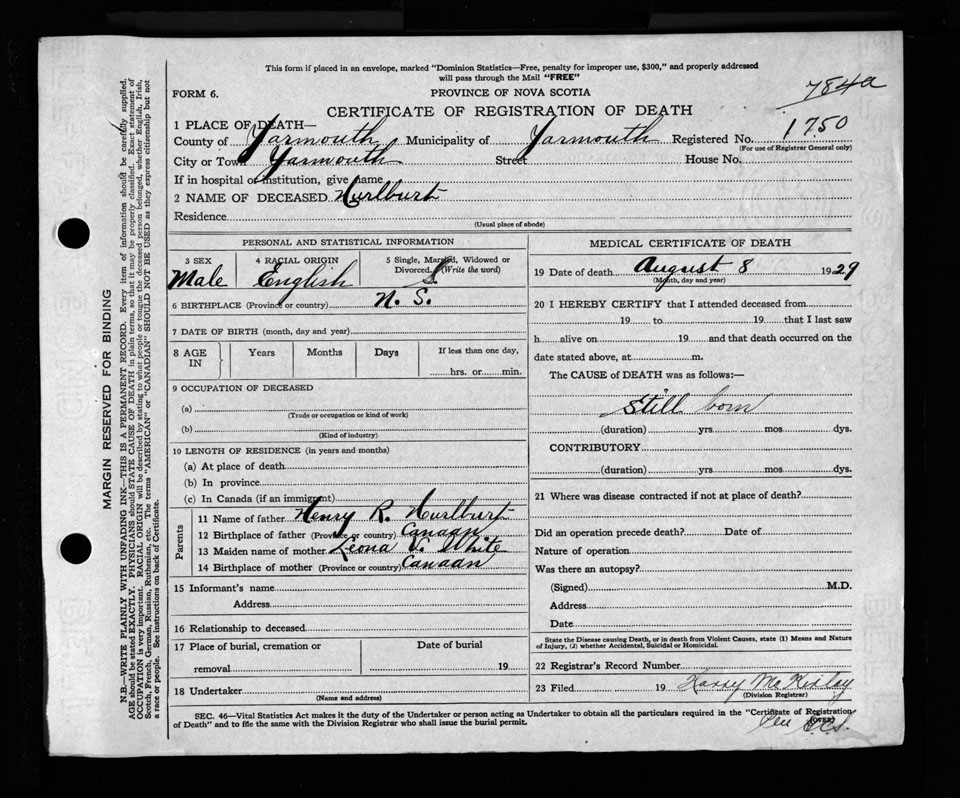 This form if placed in an envelope, marked "Dominion Statistics—Free, penalty for improper use, $300," and properly addressed
will pass through the Mail "FREE"
784a
FORM 6. PROVINCE OF NOVA SCOTIA
CERTIFICATE OF REGISTRATION OF DEATH
1 PLACE OF DEATH—
County of Yarmouth Municipality of Yarmouth Registered No. 1750
(For use of Registrar General only)
City or Town Yarmouth Street House No.
If in hospital or institution, give name
2 NAME OF DECEASED Hurlburt
Residence
(Usual place of abode)
PERSONAL AND STATISTICAL INFORMATION
3 SEX 4 RACIAL ORIGIN 5 Single, Married, Widowed or
Divorced. (Write the word)
Male English S.
6 BIRTHPLACE (Province or country) N. S.
7 DATE OF BIRTH (month, day and year)
8 AGE IN Years Months Days If less than one day,
hrs. or min.
9 OCCUPATION OF DECEASED
(a)
(Trade or occupation or kind of work)
(b)
(Kind of industry)
10 LENGTH OF RESIDENCE (in years and months)
(a) At place of death
(b) In province
(c) In Canada (if an immigrant)
Parents
11 Name of father Henry R. Hurlburt
12 Birthplace of father (Province or country) Canaan
13 Maiden name of mother Leona V. White
14 Birthplace of mother (Province or country) Canaan
15 Informant's name
Address
16 Relationship to deceased
17 Place of burial, cremation or Date of burial
removal 19
18 Undertaker
(Name and address)
MEDICAL CERTIFICATE OF DEATH
19 Date of death August 8 1929
(Month, day and year)
20 I HEREBY CERTIFY that I attended deceased from
19 to 19 that I last saw
h alive on 19 and that death occurred on the
date stated above, at m.
The CAUSE of DEATH was as follows:—
Still born
(duration) yrs mos dys.
CONTRIBUTORY
(duration) yrs mos dys.
21 Where was disease contracted if not at place of death?
Did an operation precede death? Date of
Nature of operation
Was there an autopsy?
(Signed) M.D.
Address
Date
State the Disease causing Death, or in death from Violent Causes, state (1) Means and Nature
of Injury, (2) whether Accidental, Suicidal or Homicidal.
22 Registrar's Record Number
23 Filed 19 Harry McKinlay
(Division Registrar)
SEC. 46—Vital Statistics Act makes it the duty of the Undertaker or person acting as Undertaker to obtain all the particulars required in the "Certificate of Registration
of Death" and to file the same with the Division Registrar who shall issue the burial permit. (OVER)
MARGIN RESERVED FOR BINDING
N.B.—WRITE PLAINLY WITH UNFADING INK—THIS IS A PERMANENT RECORD. Every item of information should be carefully supplied.
AGE should be stated EXACTLY. PHYSICIANS should STATE CAUSE OF DEATH in plain terms, so that it may be properly classified. Exact statement of
OCCUPATION is very important. RACIAL ORIGIN will be described by stating to what people or tongue the deceased person belonged, whether English, Irish,
Scotch, French, German, Russian, Ruthenian, etc. The terms "AMERICAN" or "CANADIAN" SHOULD NOT BE USED as they express citizenship but not
a race or people. See instructions on back of Certificate.